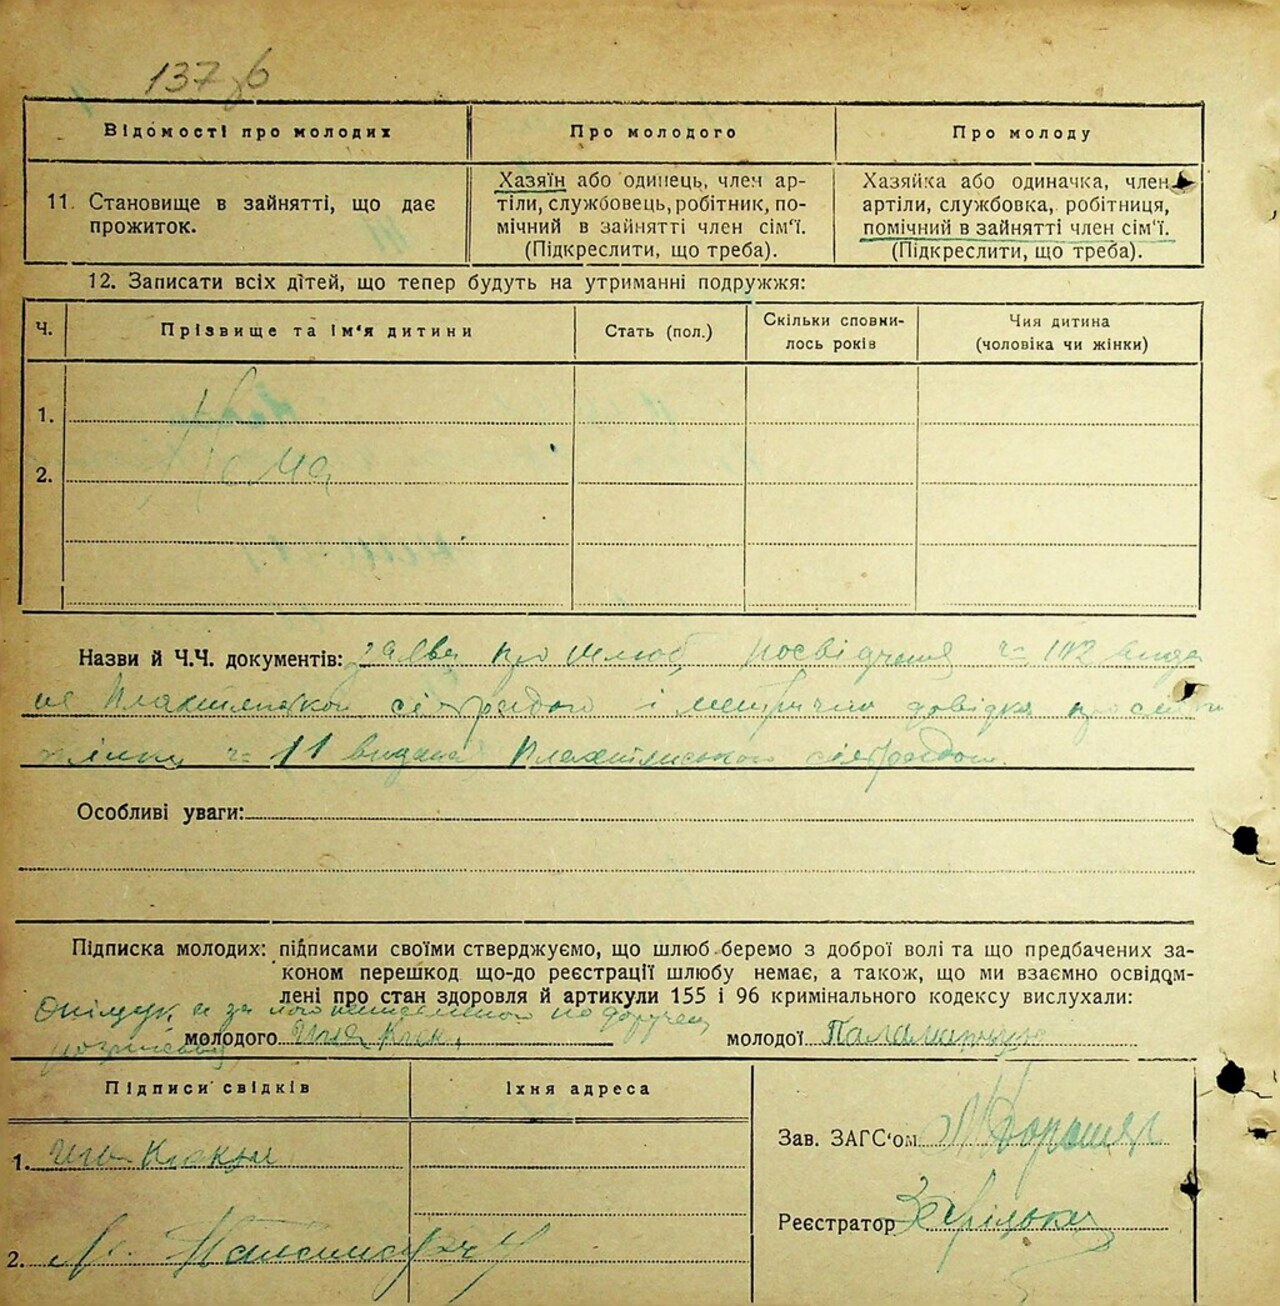 137зв
Відомості про молодих
Про молодого
Про молоду
11. Становище в зайнятті, що дає
прожиток.
Хазяїн або одинець, член ар-
тіли, службовець, робітник, по-
мічний в зайнятті член сім'ї.
(Підкреслити, що треба).
Хазяйка або одиначка, член
артіли, службовка, робітниця,
помічний в зайнятті член сім'ї.
(Підкреслити, що треба).
12. Записати всіх дітей, що тепер будуть на утриманні подружжя:
Ч.
Прізвище та ім'я дитини
Стать (пол.)
Скільки сповни-
лось років
Чия дитина
(чоловіка чи жінки)
1.
2. Нема
Назви й Ч.Ч. документів: заява про шлюб посвідчення ч= 112 вида
не сільрадою і метрична довідка про
ч= 11 видана сільрадою.
Особливі уваги:
Підписка молодих: підписами своїми стверджуємо, що шлюб беремо з доброї волі та що предбачених за-
коном перешкод що-до реєстрації шлюбу немає, а також, що ми взаємно освідом-
лені про стан здоровля й артикули 155 і 96 кримінального кодексу вислухали:
а за його неписьменного по доручен
молодого
молодої Паламарчук
Підписи свідків
Їхня адреса
1.
2.
Зав. ЗАГС'ом
Реєстратор